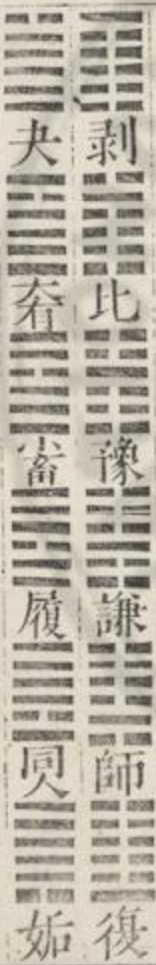 剥比豫謙師復
夬大有小畜履同人姤